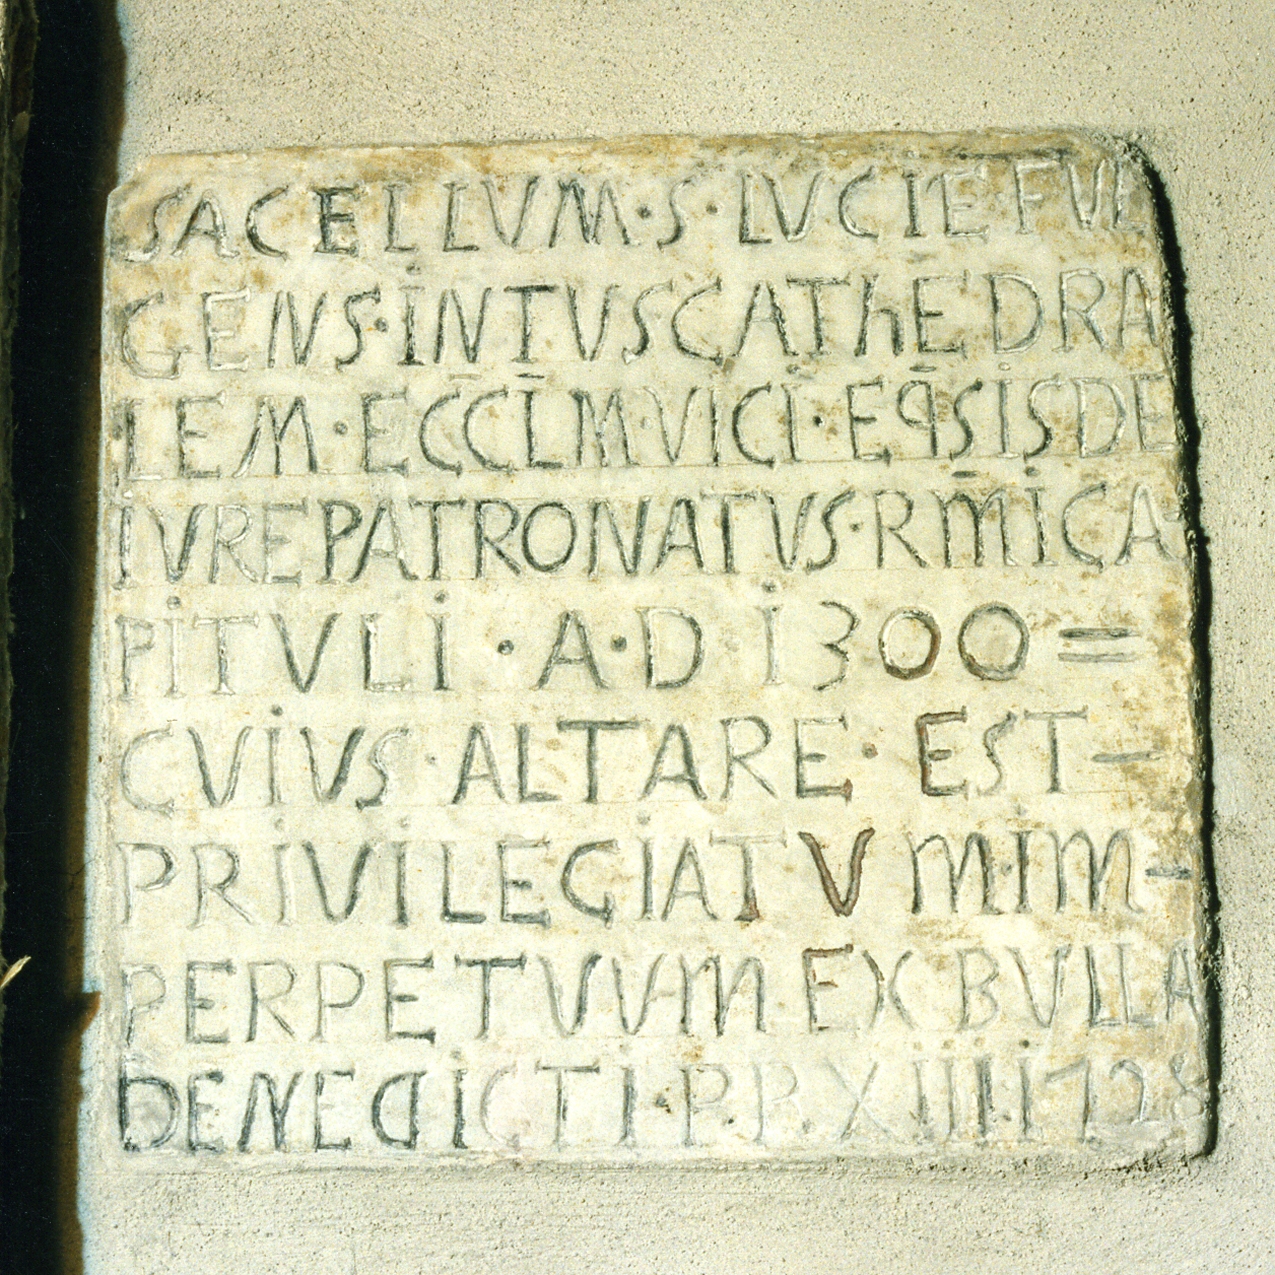 SACELLUM·S·LUCIE FUL
GENS·INTUS CATHEDRA
LEM·ECCLM VICI·EPSIS DE
IURE PATRONATUS·RMI CA
PITULI·A·D 1300=
CUIUS·ALTARE·EST-
PRIVILEGIATUM IM-
PERPETUUM EX BULLA
BENEDICTI·P·P·XIIII·1728